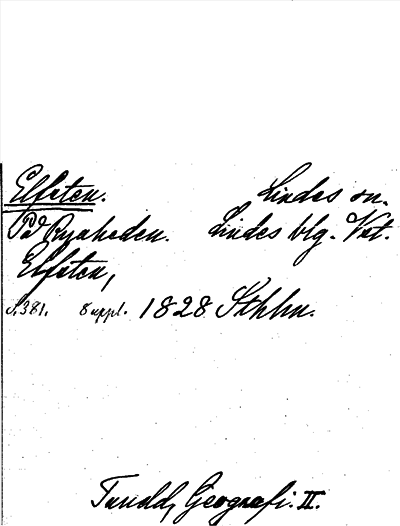 Elfsten. Lindes sn.
På Ryaheden. Lindes blg. Vst.
Elfsten,
s. 381. Suppl. 1828 Sthlm.
Tuneld, Geografi. II.